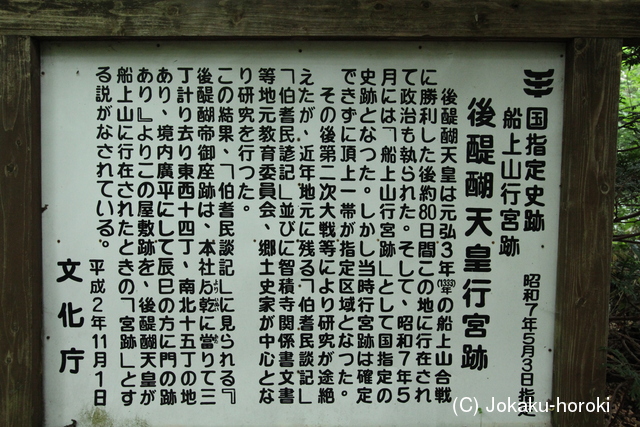 国指定史跡
船上山行宮跡
昭和7年5月3日指定
後醍醐天皇行宮跡
後醍醐天皇は元弘3年(1333年)の船上山合戦
に勝利した後約80日間この地に行在され
て政治も執られた。そして、昭和7年5
月には「船上山行宮跡」として国指定の
史跡となつた。しかし当時行宮跡は確定
できずに頂上一帯が指定区域となつた。
その後第二次大戦等により研究が途絶
えたが、近年地元に残る「伯耆民談記」
「伯耆民諺記」並びに智積寺関係書文書
等地元教育委員会、郷土史家が中心とな
り研究を行つた。
この結果、「伯耆民談記」に見られる『
後醍醐帝御座跡は、本社より乾に當りて三
丁計り去り東西十四丁、南北十五丁の地
あり、境内廣平にして辰巳の方に門の跡
あり』よりこの屋敷跡を、後醍醐天皇が
船上山に行在されたときの「宮跡」とす
る説がなされている。
平成2年11月1日
文化庁
(C) Jokaku-horoki